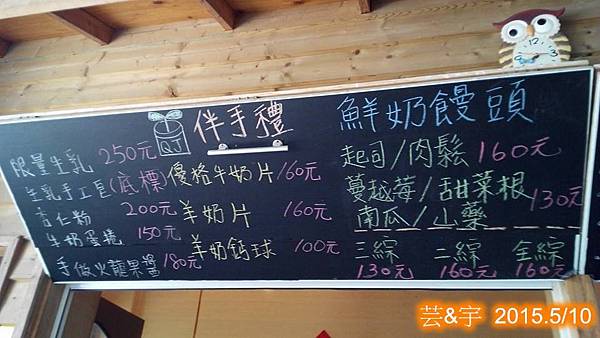 伴手禮
QJ
限量生乳 250元
生乳手工皂(底標)
杏仁粉 200元
牛奶蛋捲 150元
手做火龍果醬 180元
優格牛奶片 160元
羊奶片 160元
羊奶鈣球 100元
鮮奶饅頭
起司/肉鬆 160元
蔓越莓/甜菜根
南瓜/山藥 130元
三綜 二綜 全綜
130元 160元 160元
12
芸&宇 2015.5/10